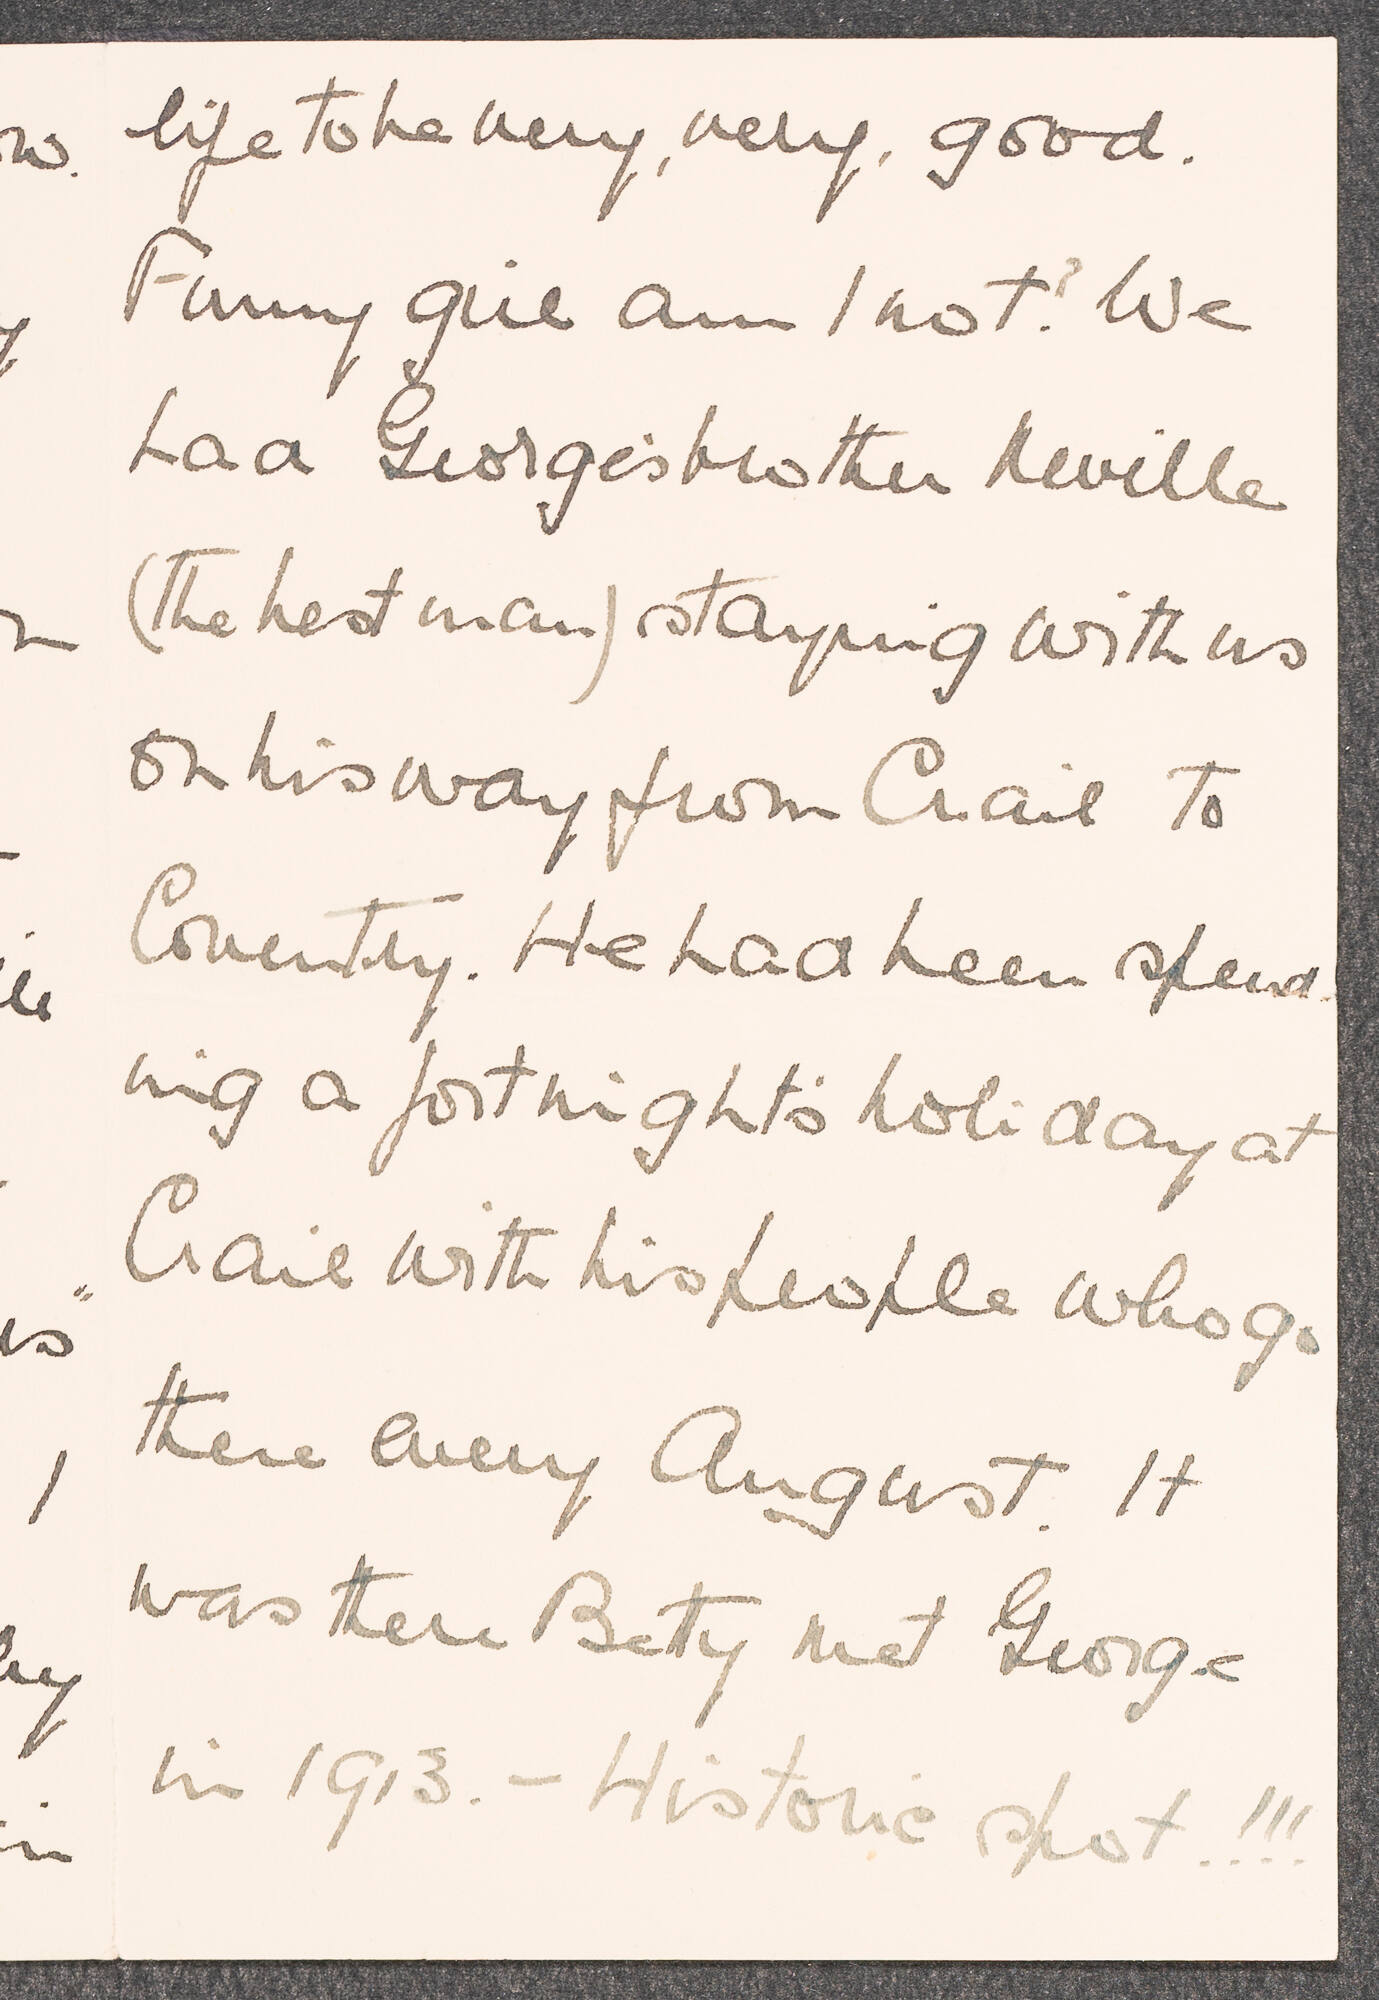 life to be very, very, good.
Funny girl am I not? We
had George's brother Neville
(the best man) staying with us
on his way from Crail to
Coventry. He had been spend
ing a fortnight's holiday at
Crail with his people who go
there every August. It
was there Betty met George
in 1913. - Historic spot..!!!